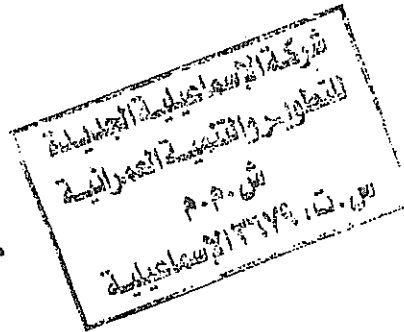 شركة الإسماعيلية الجديدة
للتطوير والتنمية العمرانية
ش.م.م
س.ت. ٣٦٧٩ الإسماعيلية